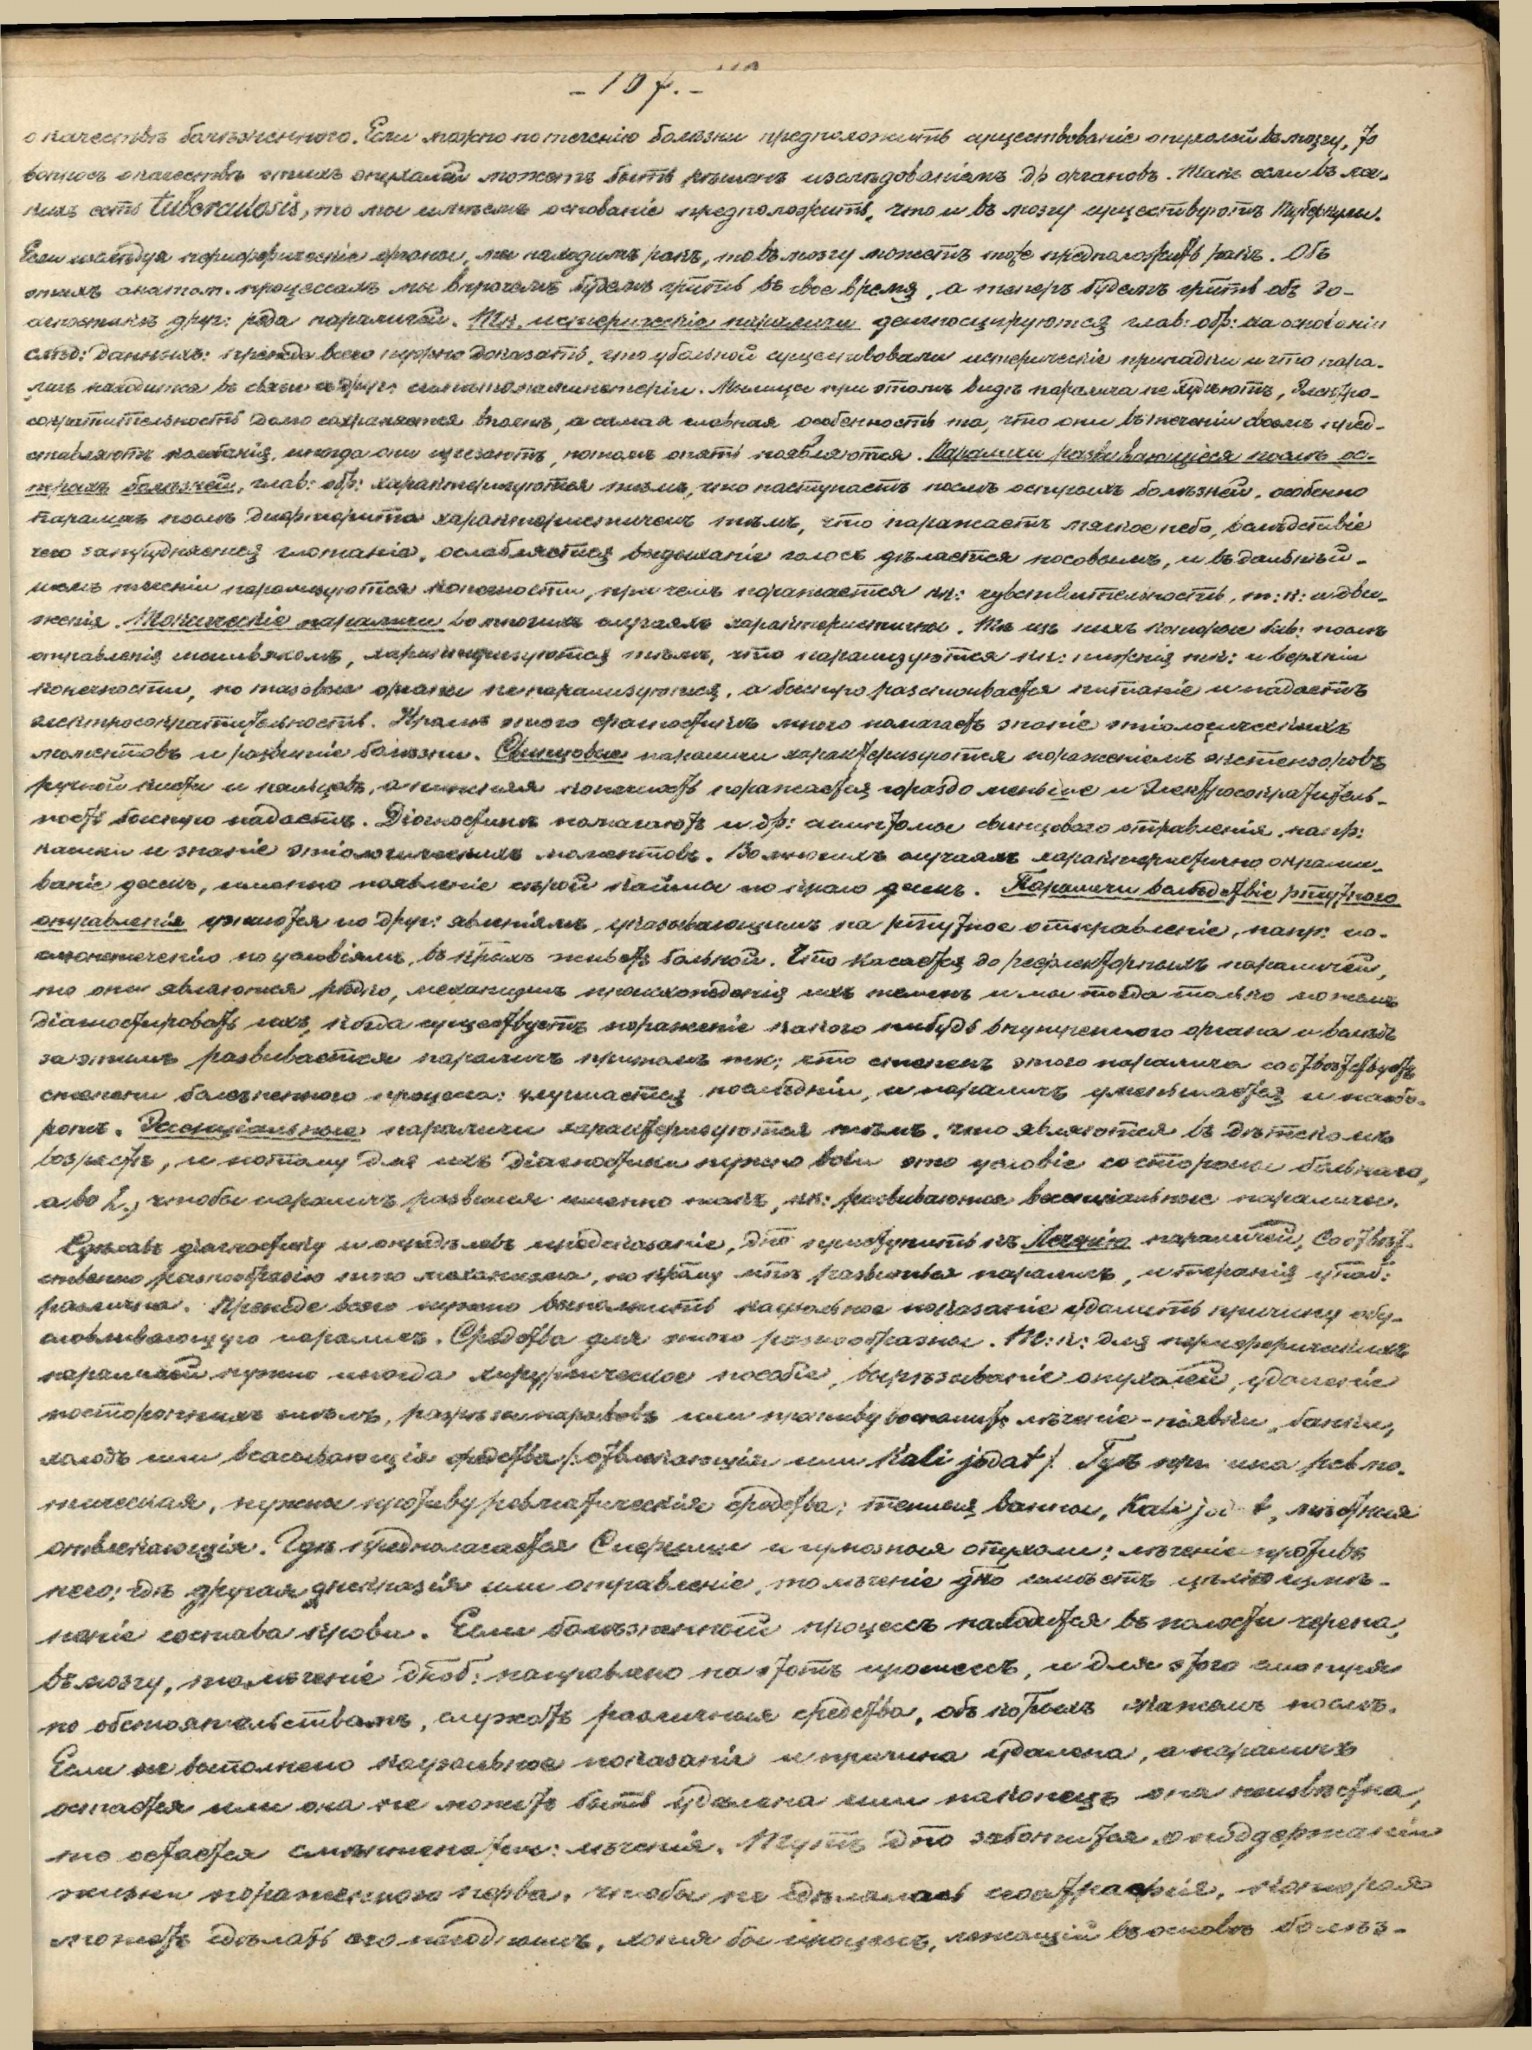 - 107. -
о качествѣ болѣзненного. Если можно по теченію болѣзни предположить существованіе опухолей въ мозгу, то
вопросъ о качествѣ этихъ опухолей можетъ быть рѣшенъ изслѣдованіемъ др органовъ. Такъ если въ лег-
кихъ есть tuberculosis, то мы имѣемъ основаніе предположить, что и въ мозгу существуютъ туберкулы.
Если изслѣдуя периферическіе органы, мы находимъ ракъ, то въ мозгу можетъ тоже предположить ракъ. Объ
этихъ анатом. процессахъ мы впрочемъ будемъ гритъ въ свое время, а теперь будемъ гритъ объ до-
діагностикѣ друг: рода параличей. Тк. истерическіе параличи діагносцируются глав: обр: на основаніи
слѣд: данныхъ: прежде всего нужно доказать, что у больной существовали истерическіе припадки и что пара-
личъ находится въ связи съ друг: симптомами истеріи. Мышцы при этомъ видѣ паралича не худѣютъ, электро-
сократительность долго сохраняется вполнѣ, а самая главная особенность та, что они въ теченіи своемъ пред-
ставляютъ колебанія, иногда они исчезаютъ, потомъ опять появляются. Параличи развивающіеся послѣ ос-
трыхъ болѣзней, глав: обр: характеризуются тѣмъ, что наступаетъ послѣ острыхъ болѣзней, особенно
параличъ послѣ дифтерита характеристиченъ тѣмъ, что поражаетъ мягкое небо, вслѣдствіе
чего затрудняется глотаніе, ослабляется выдыханіе голосъ дѣлается носовымъ, и въ дальнѣй-
шемъ теченіи парализуются конечности, при чемъ поражается кк: чувствительность, т: к: и дви-
женія. Токсическіе параличи во многихъ случаяхъ характеристичны. Тѣ изъ нихъ которые быв: послѣ
отравленія мышьякомъ, характеризуются тѣмъ, что парализуются кк: нижнія тк: и верхніи
конечности, но тазовые органы не парализуются, а быстро разстроивается питаніе и падаетъ
электросократительность. Кромѣ этого діагностикѣ много помогаетъ знаніе этіологическихъ
моментовъ и развитіе болѣзни. Свинцовые параличи характеризуются пораженіемъ экстензоровъ
ручной кисти и пальцевъ, а нижняя конечность поражается гораздо меньше и электросократитель-
ность быстро падаетъ. Діагностикѣ помогаютъ и др: симптомы свинцового отравленія, напр:
колики и знаніе этіологическихъ моментовъ. Во многихъ случаяхъ характеристично окраши-
ваніе десенъ, именно появленіе сѣрой каймы по краю десенъ. Параличи вслѣдствіе ртутного
отравленія узнаются по друг: явленіямъ, указывающимъ на ртутное отправленіе, напр: по-
слюнотеченію по условіямъ, въ крыхъ живетъ больной. Что касается до рефлекторныхъ параличей,
то они являются рѣдко, механизмъ происхожденія ихъ теменъ и мы тогда только можемъ
діагностировать ихъ, когда существуетъ пораженіе какого нибудь внутренного органа и вслѣдъ
за этимъ развивается параличъ притомъ тк: что степень этого паралича соотвѣтствуетъ
степени болѣзненного процесса: улучшается послѣдній, и параличъ уменьшается и наобо-
ротъ. Эссенціальные параличи характеризуются тѣмъ, что являются въ дѣтскомъ
возрастѣ, и потому для ихъ діагностики нужно во1хъ это условіе со стороны больного,
а во 2, чтобы параличъ развился именно такъ, кк: развиваются эссенціальные параличи.
Сдѣлавъ діагностику и опредѣливъ предсказаніе, дно приступить къ Лѣченію параличей, Соотвѣт-
ственно разнообразію того механизма, по крому развился параличъ, и терапія
различна. Прежде всего нужно выполнить каузальное показаніе удалить причину обу-
словливающую параличъ. Средства для этого разнообразны. Т: к: для периферическихъ
параличей нужно иногда хирургическое пособіе, вырѣзываніе опухолей, удаленіе
постороннихъ тѣлъ, разрѣзы нарывовъ или противувоспалит лѣченіе - піявки, банки,
холодъ или всасывающія средства /: отвлекающія или Kali jodat /. Гдѣ причина ревма-
тическая, нужны противуревматическія средства: теплыя ванны, Kali jodat, мѣстныя
отвлекающія. Гдѣ предполагается Сифилисъ и опухоли: лѣченіе противъ
него; гдѣ другая дискразія или отравленіе, то лѣченіе дно имѣетъ цѣлью измѣ-
неніе состава крови. Если болѣзненный процессъ находится въ полости черепа,
въ мозгу, то лѣченіе дноб: направлено на этотъ процессъ, и для этого смотря
по обстоятельствамъ, служатъ различныя средства, объ корыхъ скажемъ послѣ.
Если же выполнено каузальное показаніе и причина удалена, а параличъ
остается или она не можетъ быть удалена или наконецъ она неизвѣстна,
то остается симптоматич: лѣченія. Тутъ дно заботиться о поддержаніи
жизни пораженного нерва, чтобы не сдѣлалась его атрофія, которая
можетъ сдѣлать его негоднымъ, хотя бы процессъ, лежащій въ основѣ болѣз-